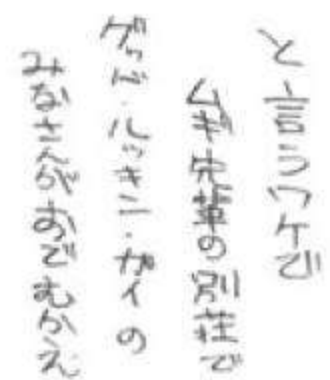 と言うワケで
ムギ先輩の別荘で
グッド・ルッキン・ガイの
みなさんがおでむかえ